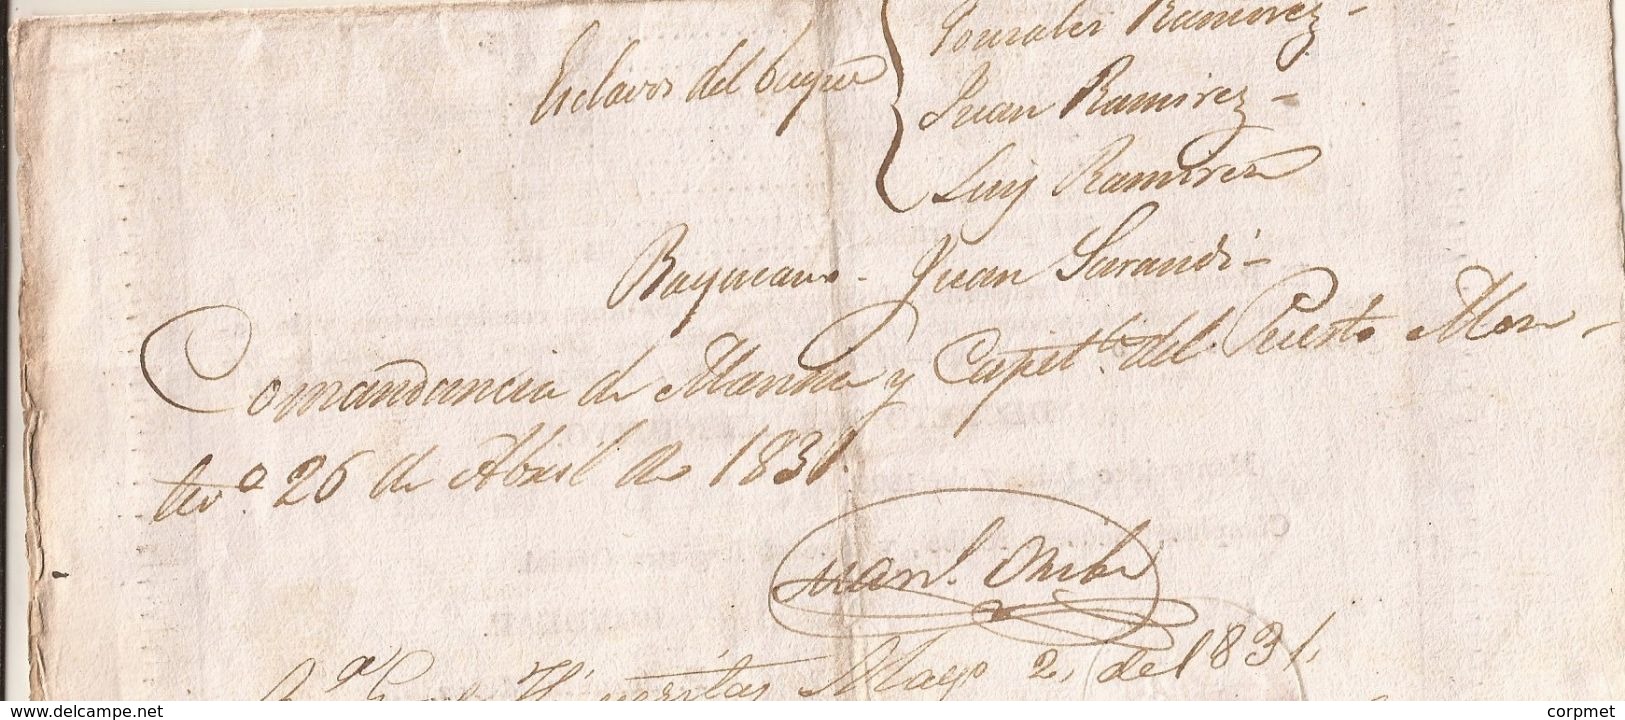 Gonzales Ramirez -
Esclavos del buque
Juan Ramirez -
Luis Ramirez
Baqueano - Juan Sarandi -
Comandancia de Marina y Capit.ª del Puerto Mon-
tev.º 26 de Abril de 1831.
Man.l Oribe
Mayo 2, del 1831,
www.delcampe.net
corpmet